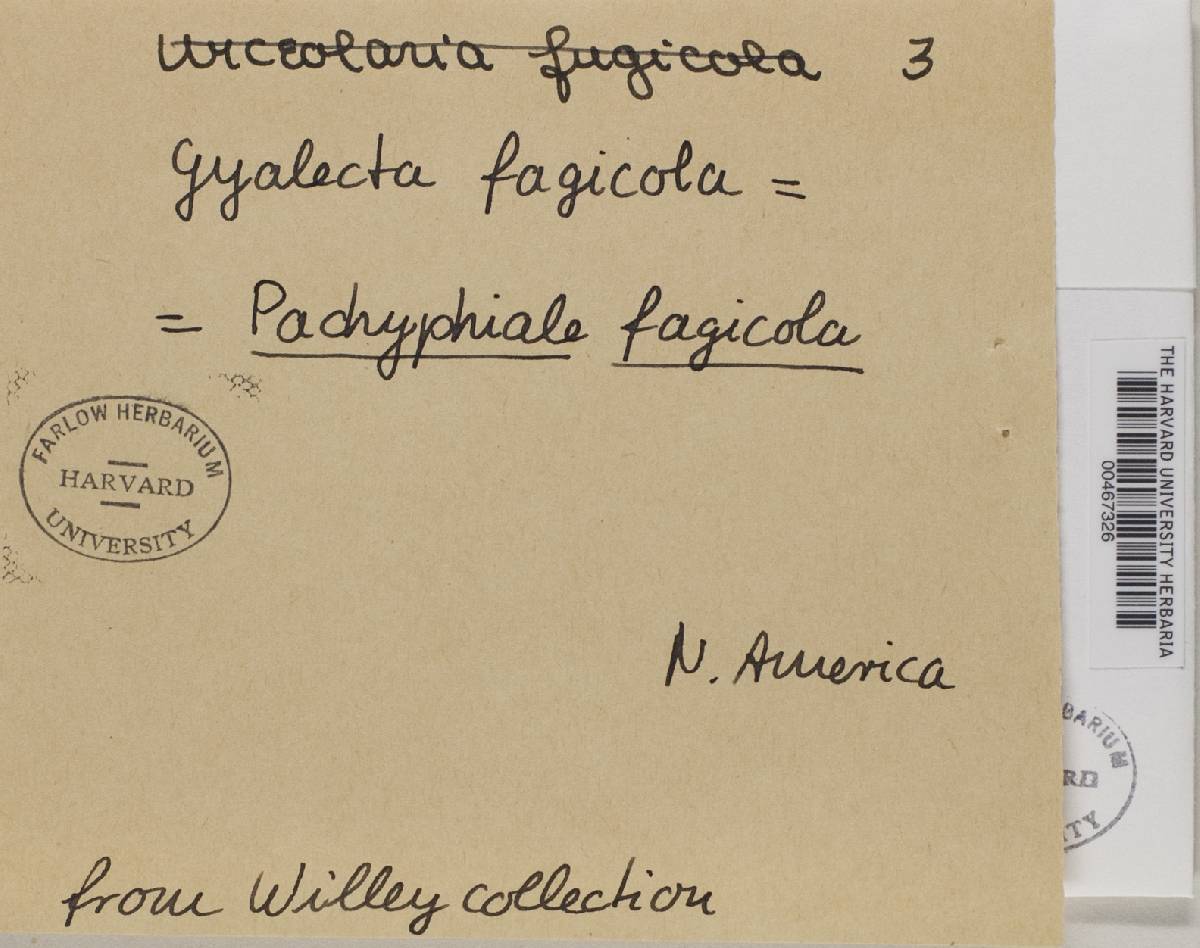 Urceolaria fugicola 3
Gyalecta fagicola =
= Pachyphiale fagicola
FARLOW HERBARIUM
HARVARD
UNIVERSITY
N. America
from Willey collection
THE HARVARD UNIVERSITY HERBARIA
00467326
BARIUM
RD
ITY